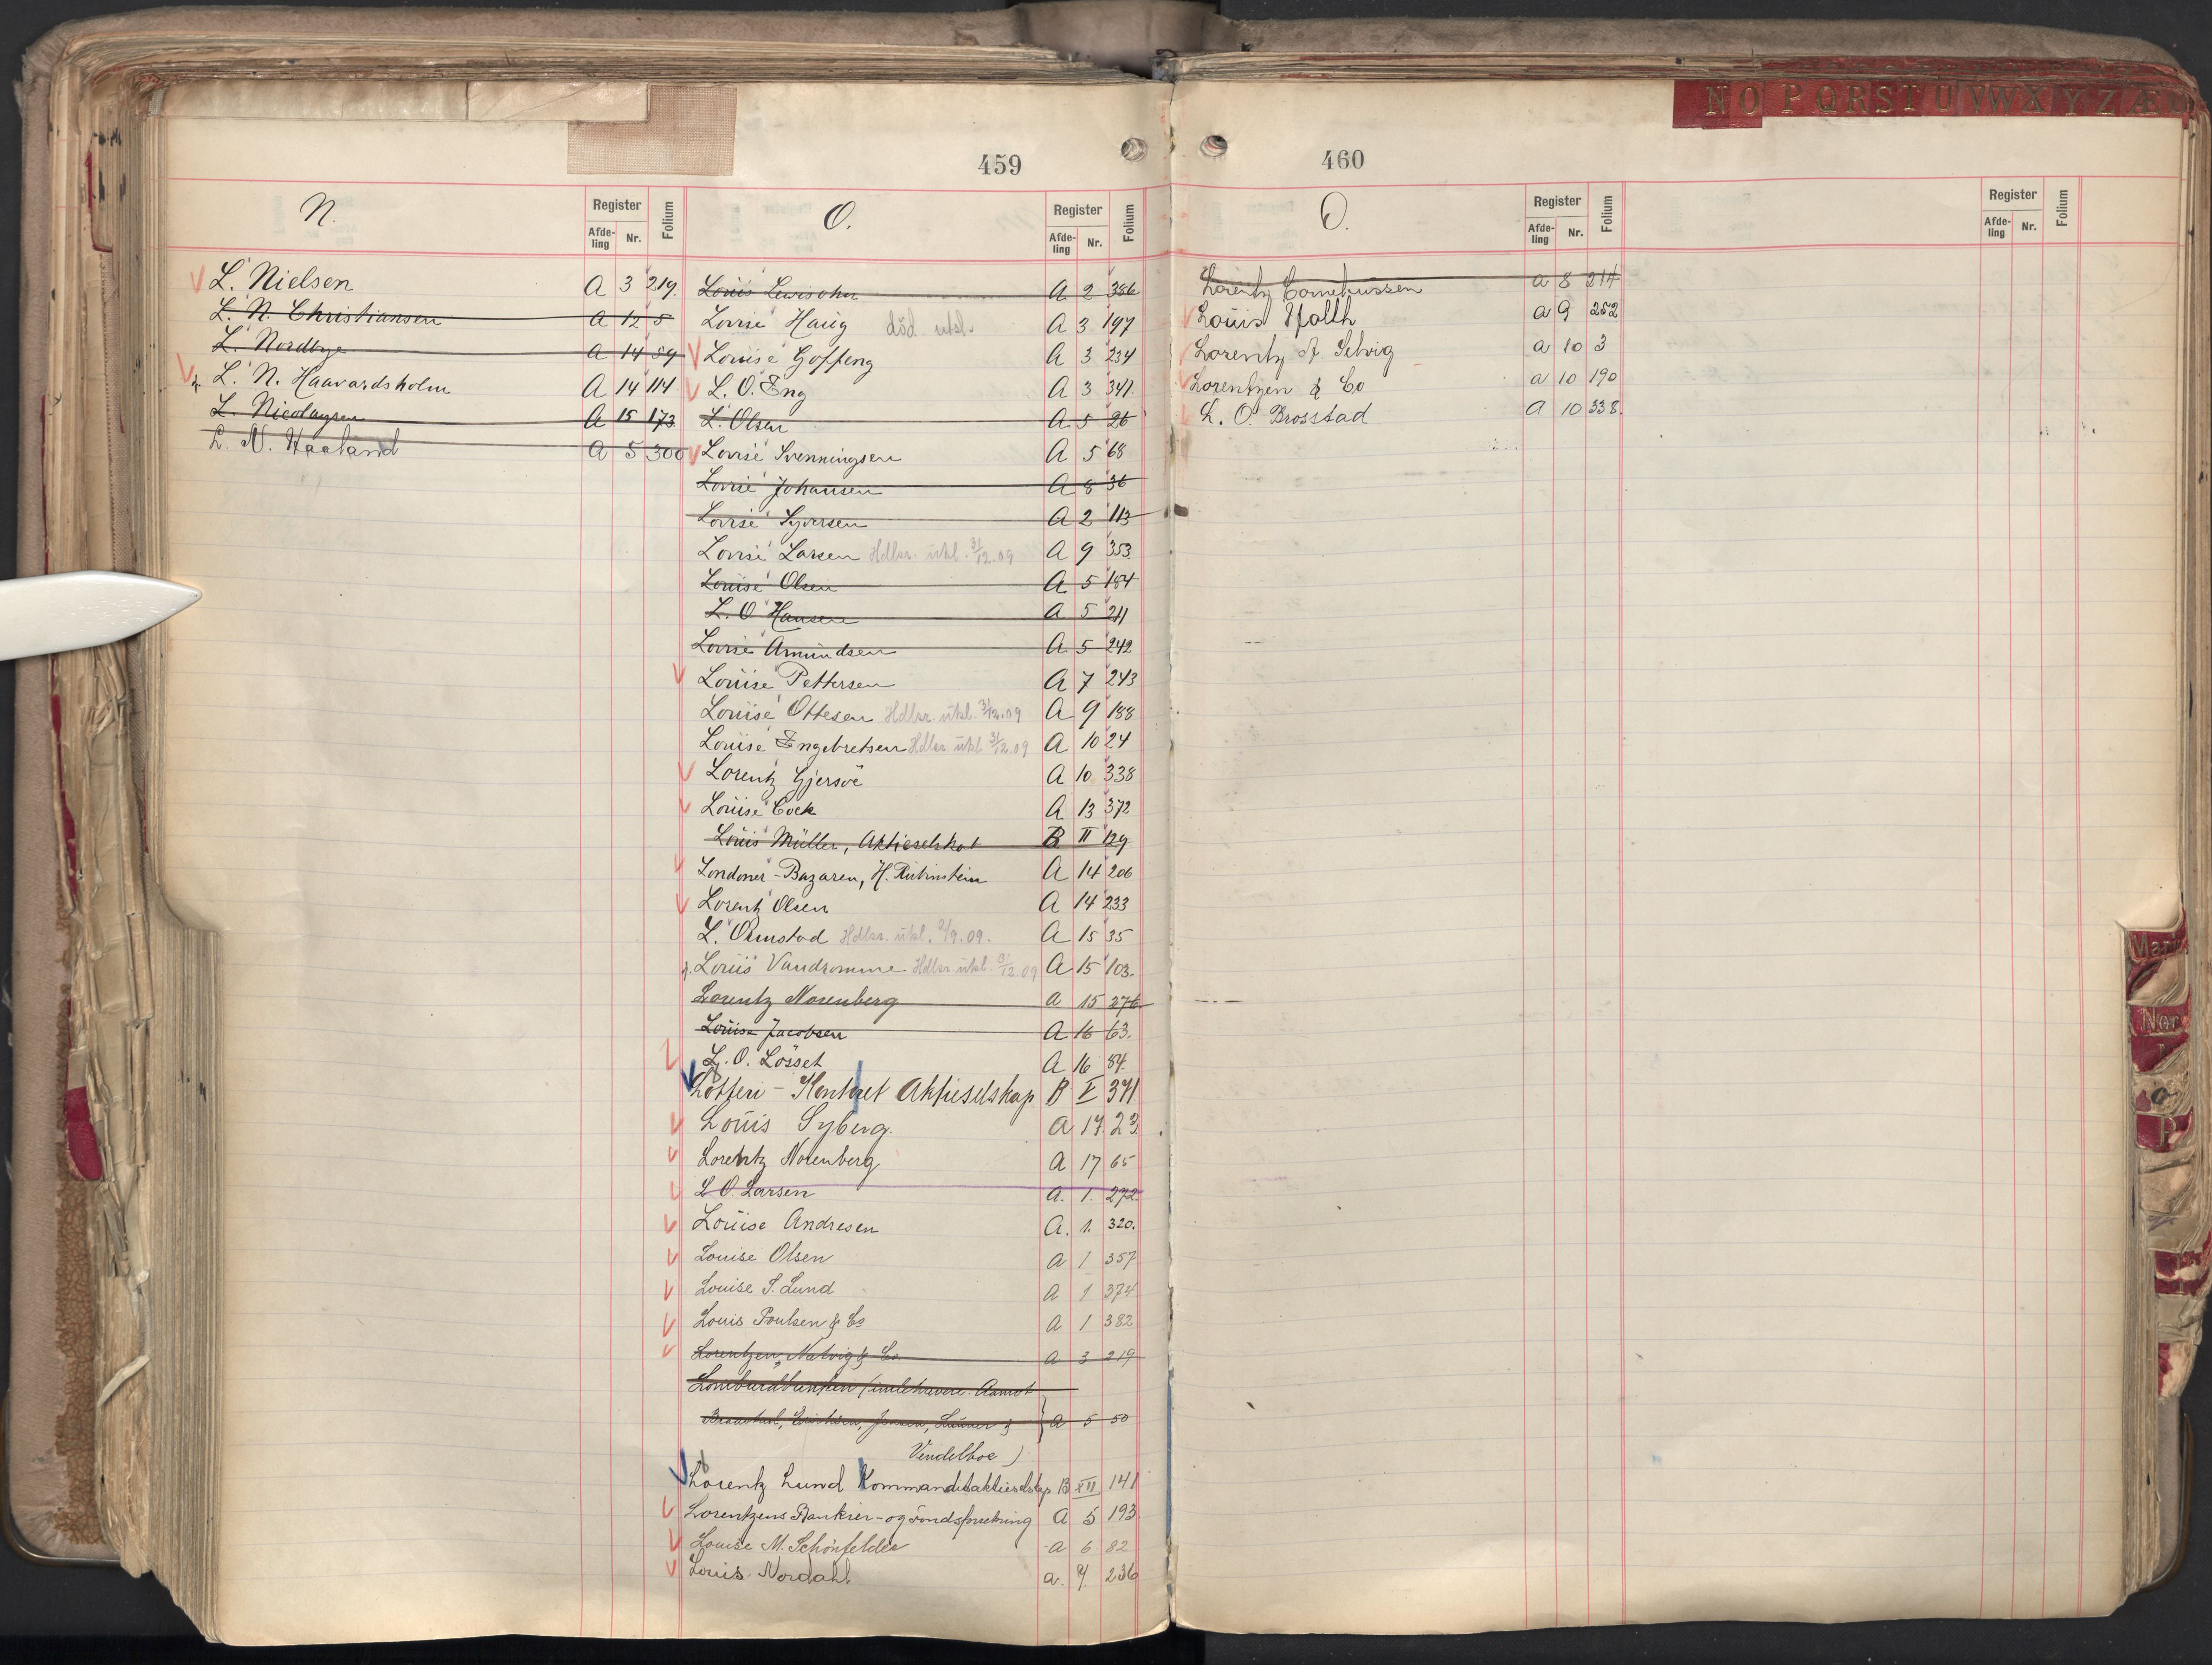 459
N.
Register
Afde-ling Nr. Folium
L. Nielsen A 3 219.
L. N. Christiansen A 12 5
L. Nordbye A 14 59
L. N. Haavardsholm A 14 114
L. Nicolaysen A 15 173
L. N. Haaland A 5 300
O.
Register
Afde-ling Nr. Folium
Louis Lewisohn A 2 386
Lovise Haug död. utsl. A 3 197
Louise Goffeng A 3 234
L. O. Eng A 3 341.
L. Olsen A 5 26
Lovise Svenningsen A 5 68
Lovise Johansen A 8 36
Lovise Syversen A 2 113
Lovise Larsen Hdlsr. ukl. 31/12.09 A 9 353
Louise Olsen A 5 184
L. O. Hansen A 5 211
Lovise Amundsen A 5 242
Louise Pettersen A 7 243
Louise Ottesen Hdlsr. ukl. 31/12.09 A 9 188
Louise Engebretsen Hdlsr. ukl. 31/12.09 A 10 24
Lorentz Gjersöe A 10 338
Louise Cock A 13 372
Louis Müller, Aktieselskat B II 129
Londoner-Bazaren, H. Rubinstein A 14 206
Lorentz Olsen A 14 233
L. Ormstad Hdlsr. ukl. 2/9.09. A 15 35
Louis Vandromme Hdlsr. ukl. 31/12.09 A 15 103.
Lorentz Nosenberg A 15 276
Louise Jacobsen A 16 63.
L. O. Lösset A 16 84.
Lotteri-Kontoret Aktieselskap B V 371
Louis Syberg. A 17 23
Lorentz Nosenberg A 17 65
L O. Larsen A. 1. 272.
Louise Andresen A. 1. 320.
Louise Olsen A 1 357
Louise S. Lund A 1 374
Louis Poulsen & Co A 1 382
Lorentzen, Natvig & Co A 3 219
Lombardbanken (innehavere: Aamot
Erichsen, Jensen, & A 5 50
Vendelboe)
Lorentz Lund Kommanditaktieselskap B XII 141
Lorentzens Bankier- og Fondsforretning A 5 193
Louise M. Schönfelder A 6 82
Louis Nordahl A. 7. 236
N O P Q R S T U V W X Y Z Æ
460
O.
Register
Afde-ling Nr. Folium
Register
Afde-ling Nr. Folium
Lorentz Corneliussen A 8 214
Louis Hfalth A 9 252
Lorentz A. Selvig A 10 3
Lorentzen & Co A 10 190
L. O. Brosstad A 10 338.
Nor
O
P